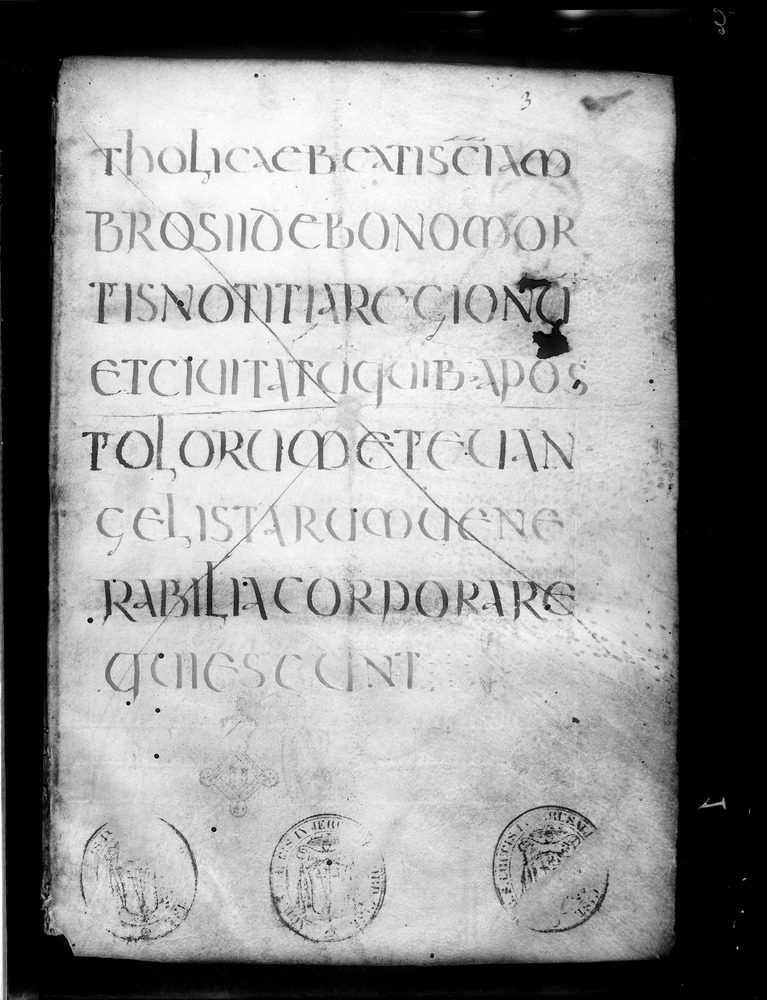 3
tholicaeb catis sci am
brosii de bono mor
tis notitia regionu
et ciuitatu quib apos
tolorum et euan
gelistarum uene
rabilia corpora re
quiescunt.